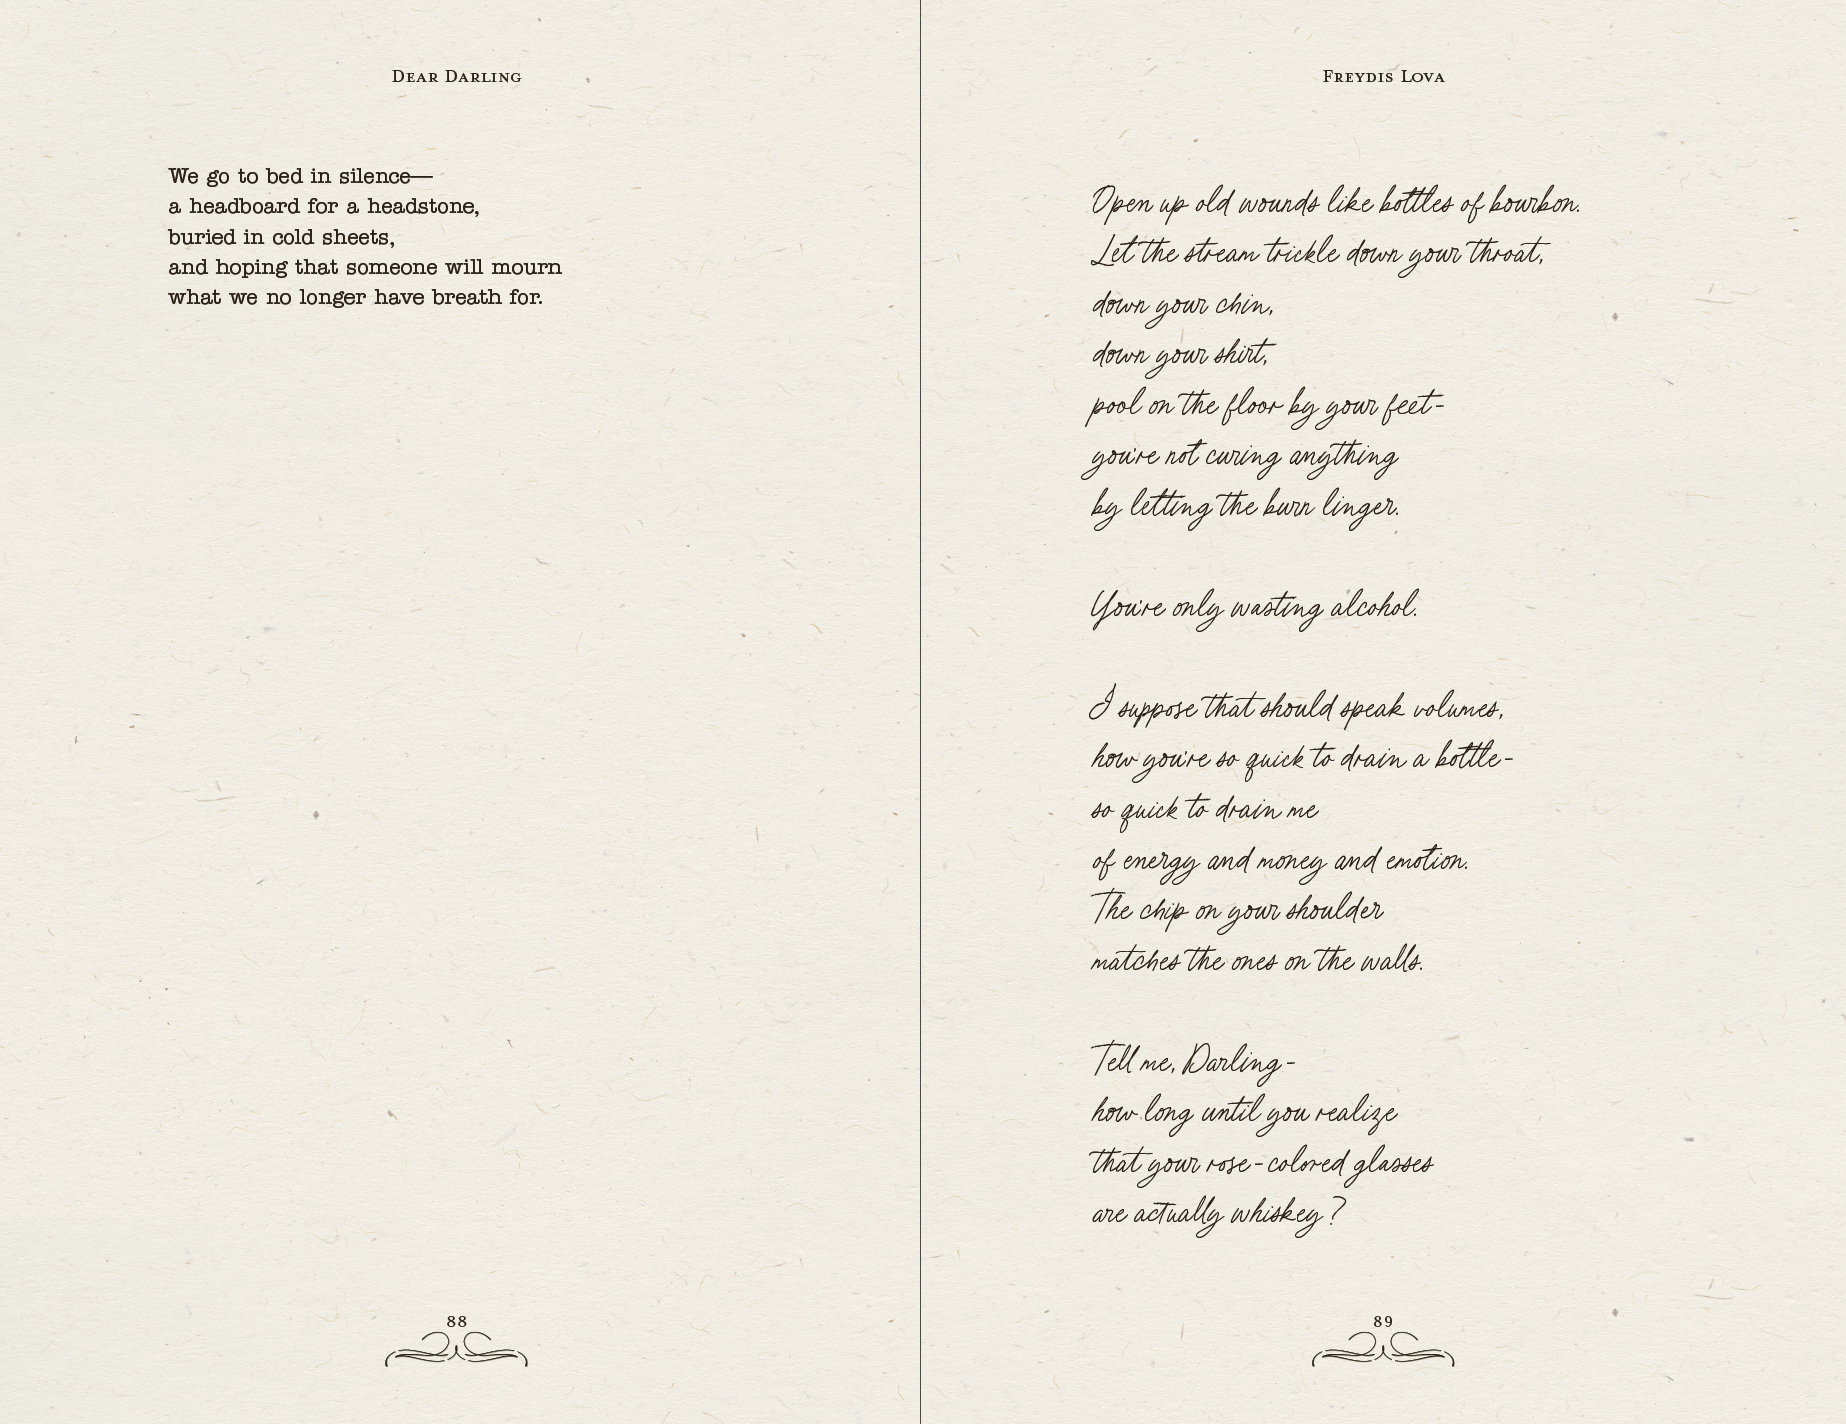 Dear Darling
We go to bed in silence—
a headboard for a headstone,
buried in cold sheets,
and hoping that someone will mourn
what we no longer have breath for.
88
Freydis Lova
Open up old wounds like bottles of bourbon.
Let the stream trickle down your throat,
down your chin,
down your shirt,
pool on the floor by your feet-
you're not curing anything
by letting the burn linger.
You're only wasting alcohol.
I suppose that should speak volumes,
how you're so quick to drain a bottle-
so quick to drain me
of energy and money and emotion.
The chip on your shoulder
matches the ones on the walls.
Tell me, Darling-
how long until you realize
that your rose-colored glasses
are actually whiskey?
89